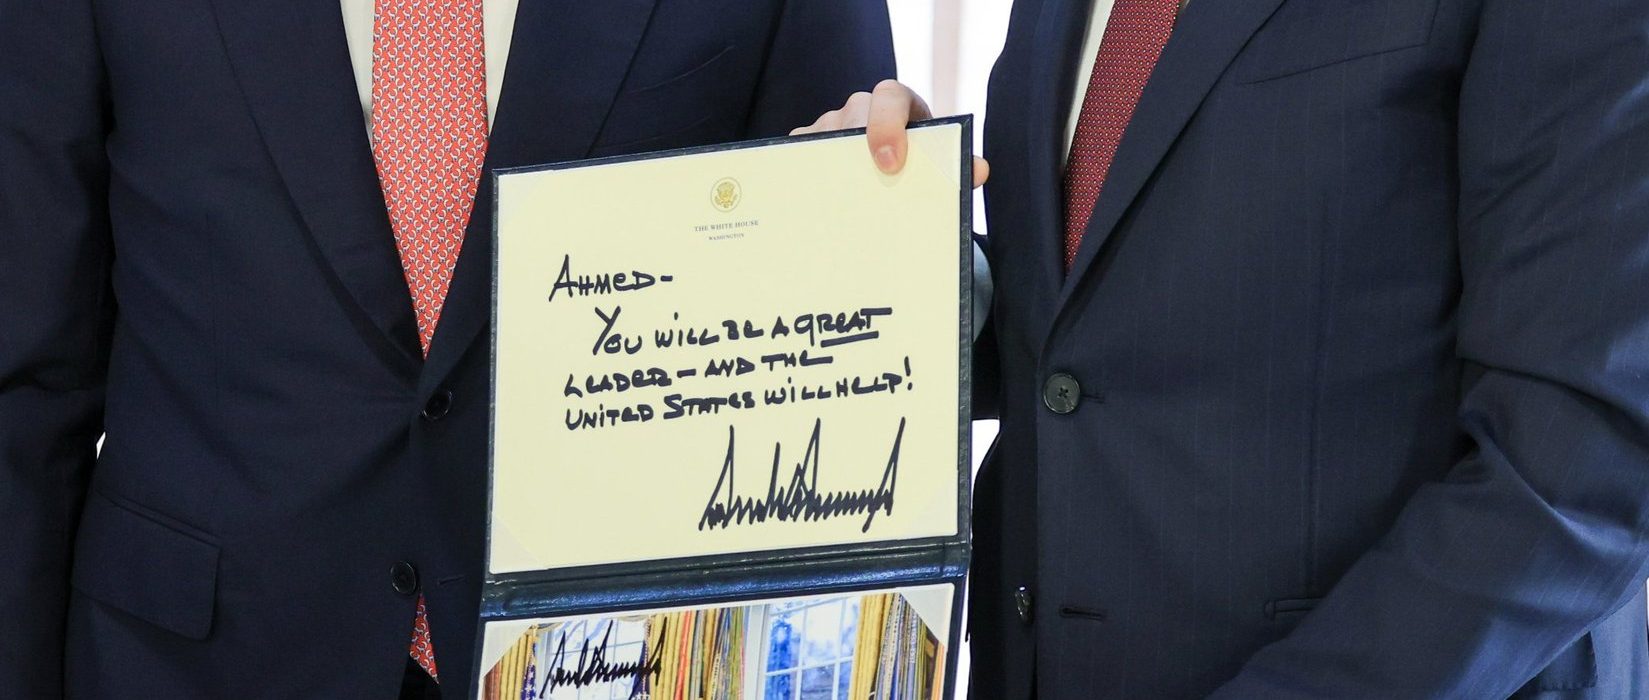 THE WHITE HOUSE
WASHINGTON
AHMED-
YOU WILL BE A GREAT
LEADER - AND THE
UNITED STATES WILL HELP!